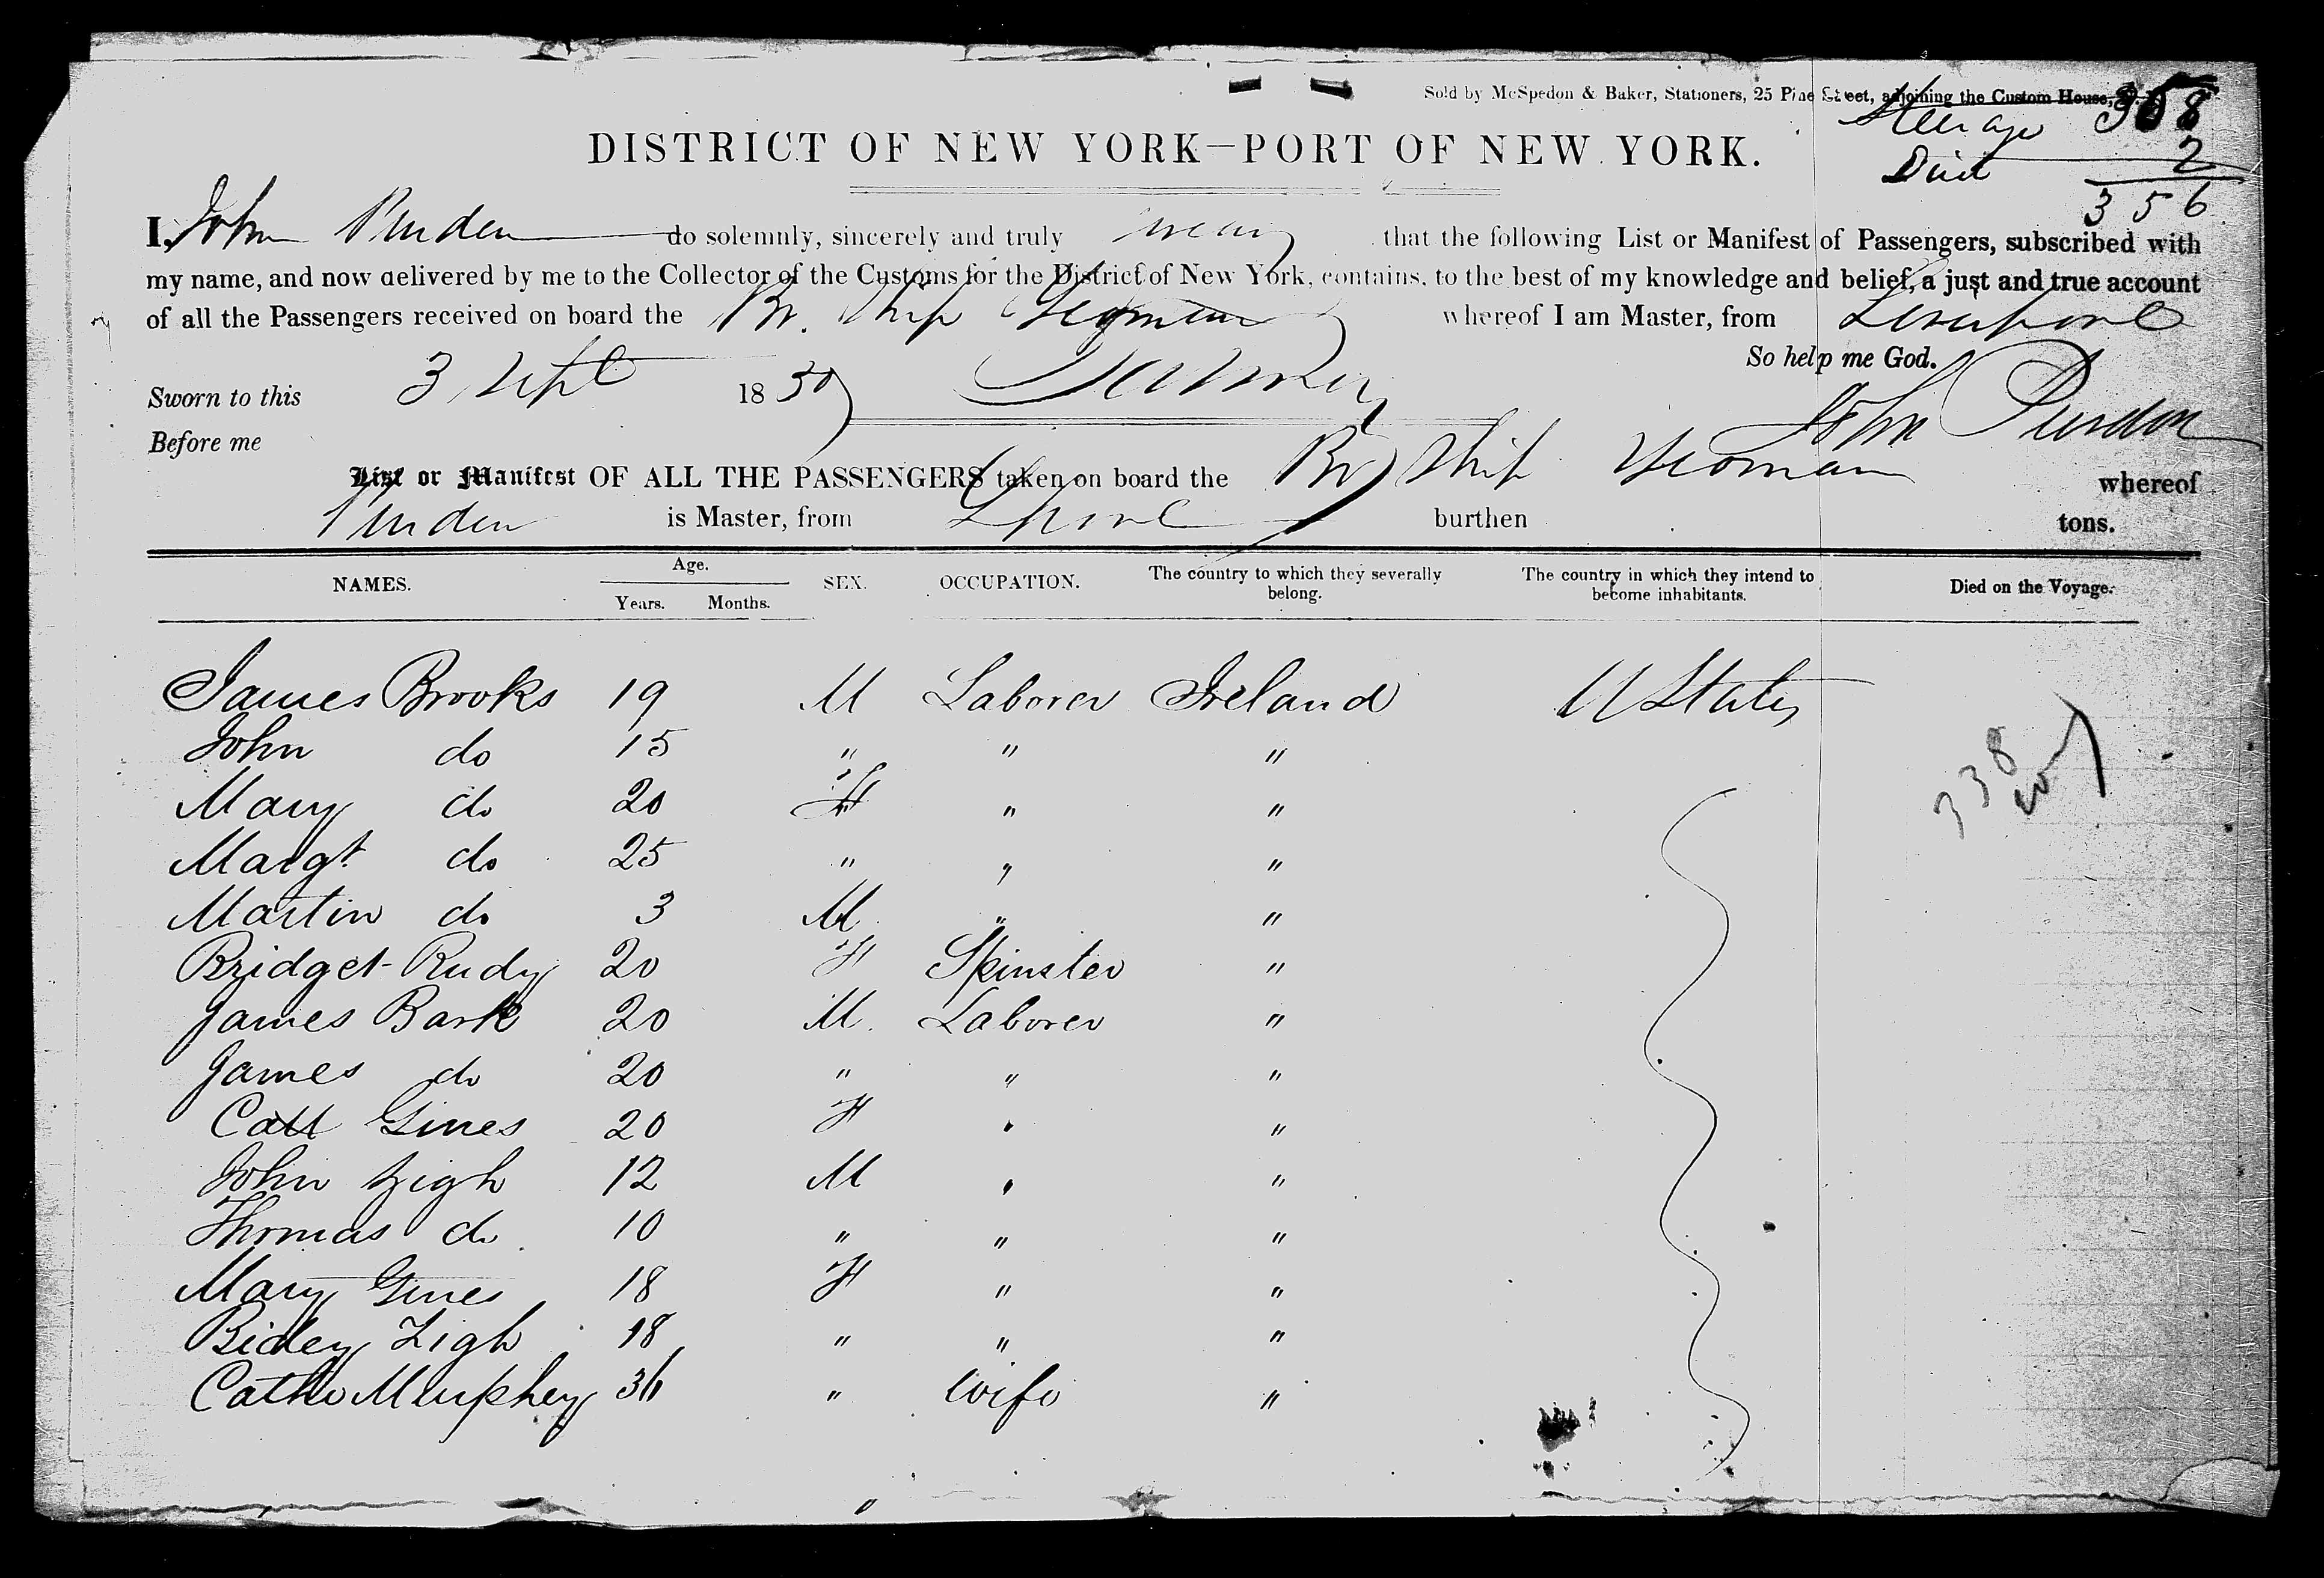 Sold by McSpedon & Baker, Stationers, 25 Pine Street, adjoining the Custom House,
Steerage 358
Died 2
356
DISTRICT OF NEW YORK—PORT OF NEW YORK.
I, John Purden do solemnly, sincerely and truly swear that the following List or Manifest of Passengers, subscribed with
my name, and now delivered by me to the Collector of the Customs for the District of New York, contains, to the best of my knowledge and belief, a just and true account
of all the Passengers received on board the Br. Ship Yeoman whereof I am Master, from Liverpool
So help me God.
Sworn to this 3 Sept 1850
John Purdon
Before me
List or Manifest OF ALL THE PASSENGERS taken on board the Br Ship Yeoman whereof
Purden is Master, from Lpool burthen tons.
NAMES. Age. SEX. OCCUPATION. The country to which they severally belong. The country in which they intend to become inhabitants. Died on the Voyage.
Years. Months.
James Brooks 19 M Laborer Ireland U States
John do 15 " " "
Mary do 20 F " "
Margt do 25 " " "
Martin do 3 M " "
Bridget Rudy 20 F Spinster "
James Bark 20 M Laborer "
James do 20 " " "
Cath Gines 20 F " "
John Ligh 12 M " "
Thomas do 10 " " "
Mary Gines 18 F " "
Bidey Ligh 18 " " "
Cathe Murphey 36 " Wife "
338